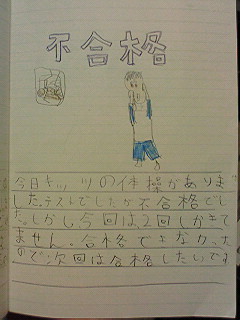 不合格
今日キッツの体操がありま
した。テストでしたが不合格でし
た。しかし今回は2回しかきて
ません。合格できなかった
ので次回は合格したいです